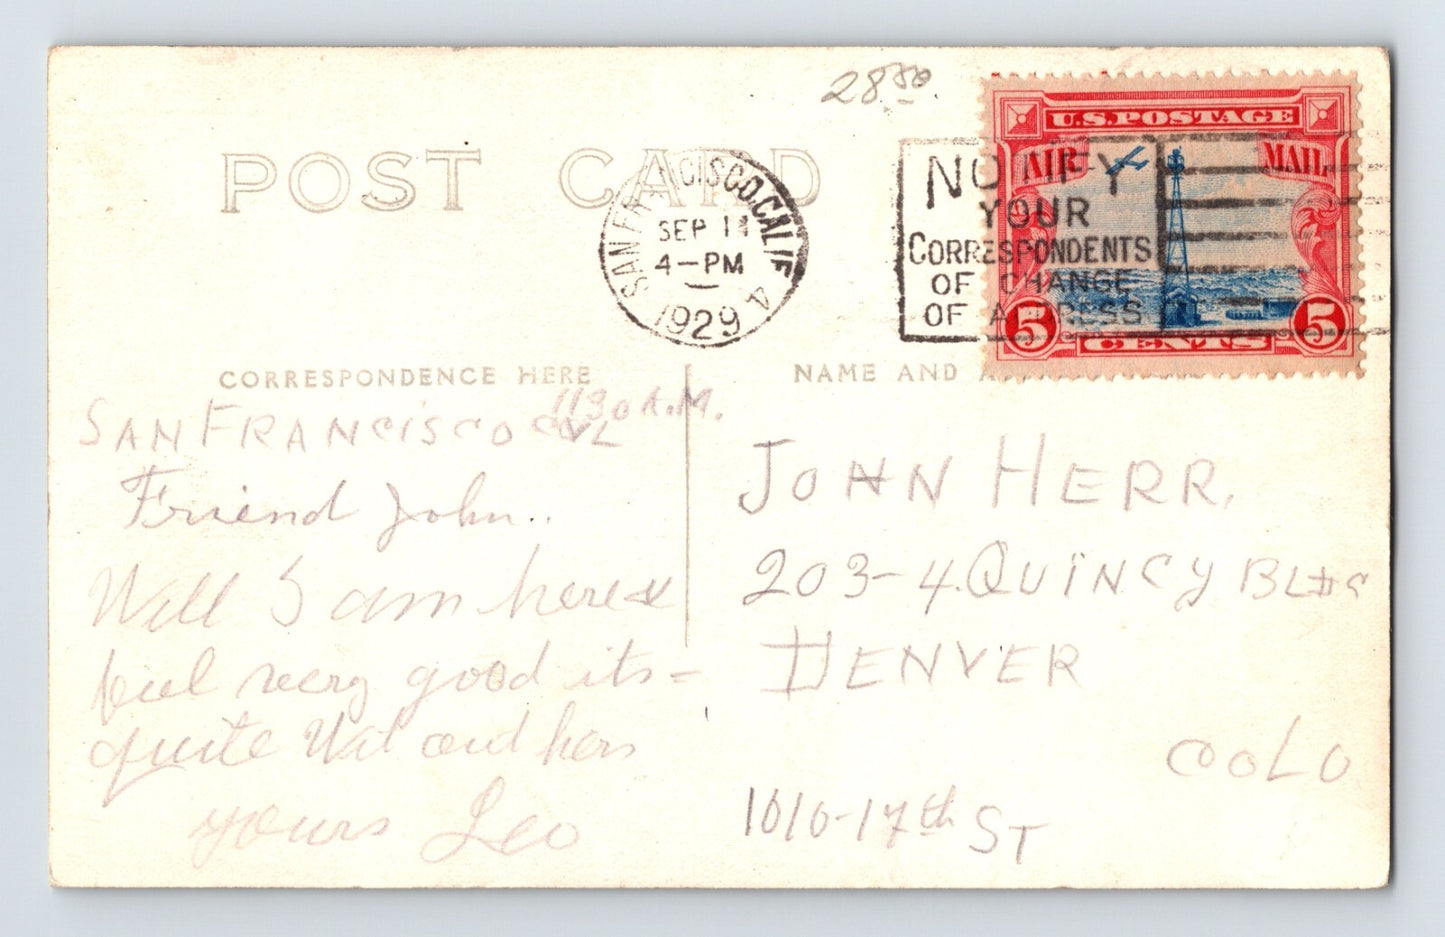 28.50
POST CARD
SAN FRANCISCO, CALIF 4
SEP 11
4-PM
1929
NOTIFY
YOUR
CORRESPONDENTS
OF CHANGE
OF ADDRESS
U.S.POSTAGE
AIR MAIL
5 CENTS 5
CORRESPONDENCE HERE
NAME AND
1130 A.M.
SAN FRANCISCO CAL
Friend John..
Well I am here &
feel very good its =
quite out hear
yours Leo
JOHN HERR.
203-4. QUINCY BLDG
DENVER
COLO
1010-17th ST